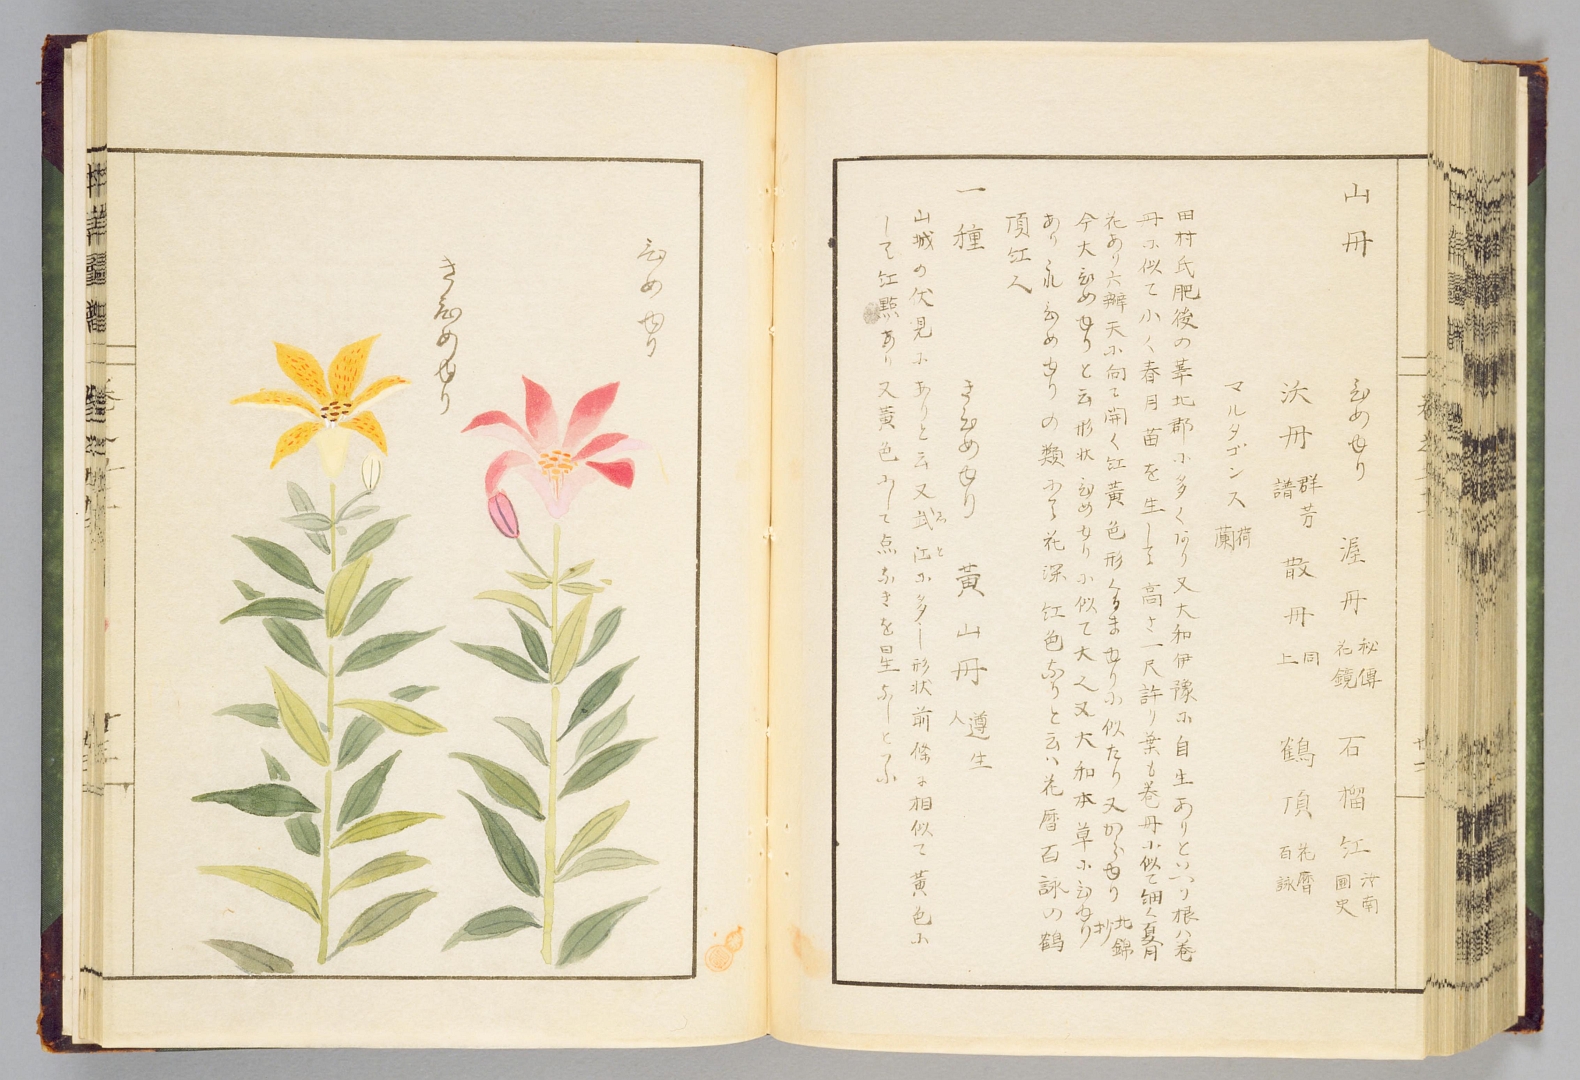 山丹 ひめゆり 渥丹 秘傳花鏡 石榴紅 汝南圃史
沃丹 群芳譜 散丹 同上 鶴頂 花暦百詠
マルタゴンス 荷蘭
田村氏肥後の葦北郡に多くあり又大和伊豫に自生ありといへり根ハ巻
丹に似て小く春月苗を生して高さ一尺許り葉も巻丹に似て細く夏月
花あり六瓣天に向て開く紅黄色形くるまゆりに似たり又からゆり 北錦抄
今大ひめゆりと云形状ひめゆりに似て大く又大和本草にひめゆり
あり ひめゆりの類にて花深紅色なりと云ハ花暦百詠の鶴
頂紅人
一種 きひめゆり 黄山丹 遵生
山城の伏見にありと云又武江に多し形状前條に相似て黄色に
して紅點あり又黄色にして点なきを星なしとふ
ひめゆり
きひめゆり